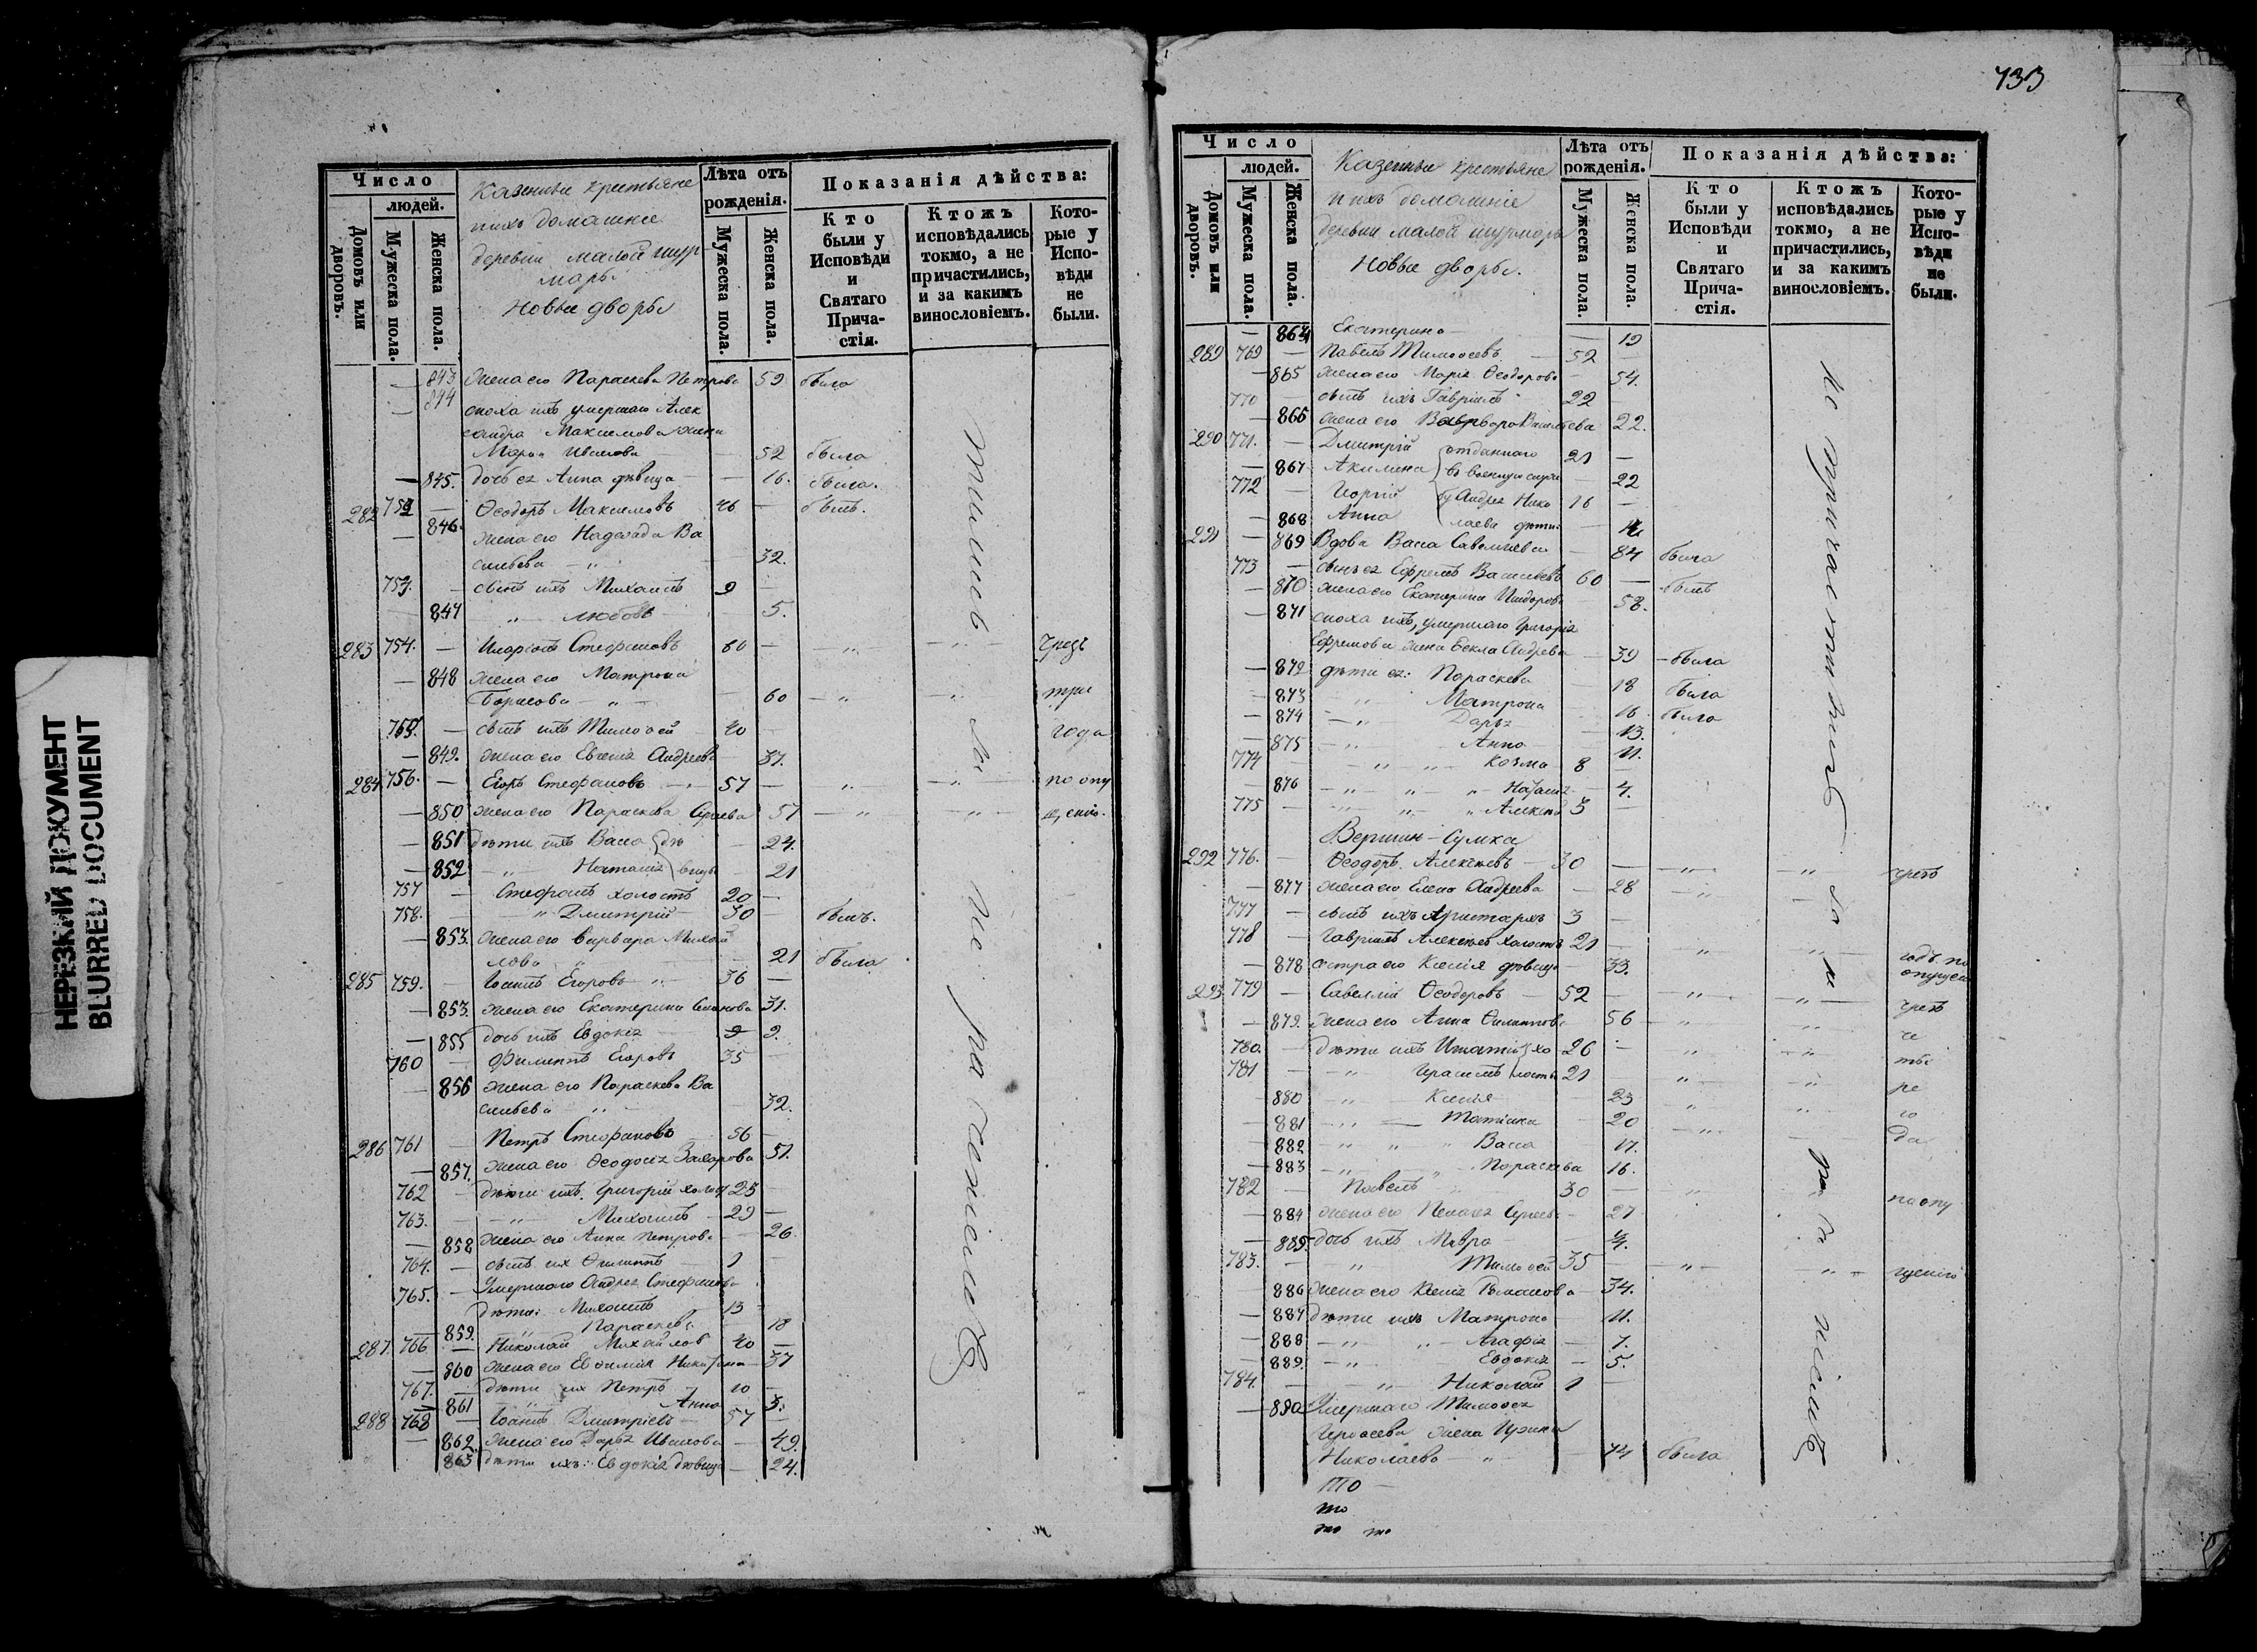 НЕРЕЗКИЙ ДОКУМЕНТ
BLURRED DOCUMENT
Число
людей.
Домовъ или дворовъ.
Мужеска пола.
Женска пола.
Казенные крестьяне
и ихъ домашніе
деревни малой шур
мары
Новые дворы
Лѣта отъ рожденія.
Мужеска пола.
Женска пола.
Показанія дѣйства:
Кто были у Исповѣди и Святаго Прича-стія.
Ктожъ исповѣдались токмо, а не причастились, и за какимъ винословіемъ.
Кото-рые у Испо-вѣди не были.
— 843 жена его Параскева Петрова 59 была
— 844 сноха ихъ умершаго Алек
сандра Максимова жена
Марья Иванова — 52 была
— 845. дочь ея Анна дѣвица — 16. была.
282 752 — Ѳеодоръ Максимовъ 46 — былъ.
— 846. жена его Надежда Ва
сильева — 32.
753. — сынъ ихъ Михаилъ 9 —
847 „ Любовь 5.
283 754. — Иларіонъ Стефановъ 80 — „ „ чрезъ
— 848 жена его Матрона
Борисова — „ — 60 — „ „ три
755. — сынъ ихъ Тимоѳей 40 — года
— 849. жена его Евгенія Андреева — 37.
284 756. — Егоръ Стефановъ — 57 — „ „ по опу
— 850 жена его Параскева Сергеева 57 — „ „ щенію.
— 851 дѣти ихъ Васса дѣ — 24.
— 852 — „ Наталія вицы — 21
757 — Стефанъ холостъ 20 —
758. — „ Дмитрій 30 — былъ.
— 853. жена его Варвара Михай
лова — 21 была
285 759. — Іоаннъ Егоровъ „ 36 —
— 853. жена его Екатерина Семенова 31.
— 855 дочь ихъ Евдокія 9 9.
760 — Филиппъ Егоровъ 35 —
— 856 жена его Параскева Ва
сильева „ 32.
286 761 — Петръ Стефановъ 56 —
— 857. жена его Ѳеодосія Захарова 51.
762 — дѣти ихъ Григорій холост 23 —
763. — „ Михаилъ — 29 —
— 858 жена его Анна Петрова — 26.
764. — сынъ их Филиппъ — 1
765. — Умершаго Андрея Стефанова
дѣти: Михаилъ — 13
— 859. „ Параскева 18
287. 766 — Николай Михайлов 40 —
— 860 жена его Евѳимія Никитина — 37
767. — дѣти их Петръ — 10 —
— 861 „ Анна 3.
288 768 — Іоаннъ Дмитріевъ — 57 —
— 862. жена его Дарья Иванова — 49.
863 дѣти ихъ: Евдокія дѣвица — 24.
733
Число
людей.
Домовъ или дворовъ.
Мужеска пола.
Женска пола.
Казенные крестьяне
и ихъ домашніе
деревни малой шурмары
Новые дворы.
Лѣта отъ рожденія.
Мужеска пола.
Женска пола.
Показанія дѣйства:
Кто были у Исповѣди и Святаго Прича-стія.
Ктожъ исповѣдались токмо, а не причастились, и за какимъ винословіемъ.
Кото-рые у Испо-вѣди не были.
— 864 Екатерина — — 19
289 769 — Павелъ Тимоѳеевъ — 52 —
— 865 жена его Марія Ѳеодорова — 54.
770 — сынъ ихъ Гавріилъ 22 —
— 865 жена его Варвара Васильева 22.
290 771. — Дмитрій отданнаго 21 —
— 867 Акилина въ военную служ 22
772 — Георгій бу Андрея Нико 16 —
— 868 Анна лаева дѣти: — 14
291 — 869 Вдова Васса Савельева — 84 была
773 — сынъ ея Ефремъ Васильевъ 60 — былъ
— 870 жена его Екатерина Исидорова 58.
— 871 сноха ихъ, умершаго Григорія
Ефремова жена Ѳекла Андреева — 39 — была
— 872 дѣти ея: Параскева — 18 была
— 873 „ Матрона — 16. была
— 874 — „ Дарья — 13.
— 875 — „ Анна — 11.
774 — „ „ Козма — 8
— 876 — „ „ „ Наталія — 4.
775 — „ „ „ Алексѣй 3 —
Вершин-Сумка
292 776. — Ѳеодоръ Алексѣевъ — 30 — „ „ чрезъ
— 877 жена его Елена Андреева — 28 — „
777 — сынъ ихъ Аристархъ 3 —
778 — Гавріилъ Алексѣев холостъ 21 — „ „ годъ по
— 878 сестра его Ксенія дѣвица — 33. опущен
293 779 — Савелій Ѳеодоровъ — 52 — „ „ чрезъ
— 879. жена его Анна Филиппова 56 — „ че
780. — дѣти ихъ Игнатій хо 26 — „ „ ты
781 — „ Герасимъ лосты 21 — „ „ ре
— 880 — „ Ксенія — 23 „ „ го
— 881 — „ — Татіана — 20 „ да
— 882 „ „ „ Васса — 17.
— 883 — „ „ Параскева 16.
782 — Павелъ 30 — „ по опу
— 884 жена его Пелагея Сергеева — 27
— 885. дочь ихъ Мавра — 4.
783. — „ Тимоѳей 35 — „ „ щенію
— 886 жена его Ксенія Романова — 34.
— 887 дѣти ихъ Матрона — 11.
— 888 — „ „ Агафія — 7.
— 889. — „ Евдокія — 5.
784. — „ Николай 1 —
— 890 Умершаго Тимоѳея
жена Ирина
Николаева — „ — 74 была
то —
то
то то